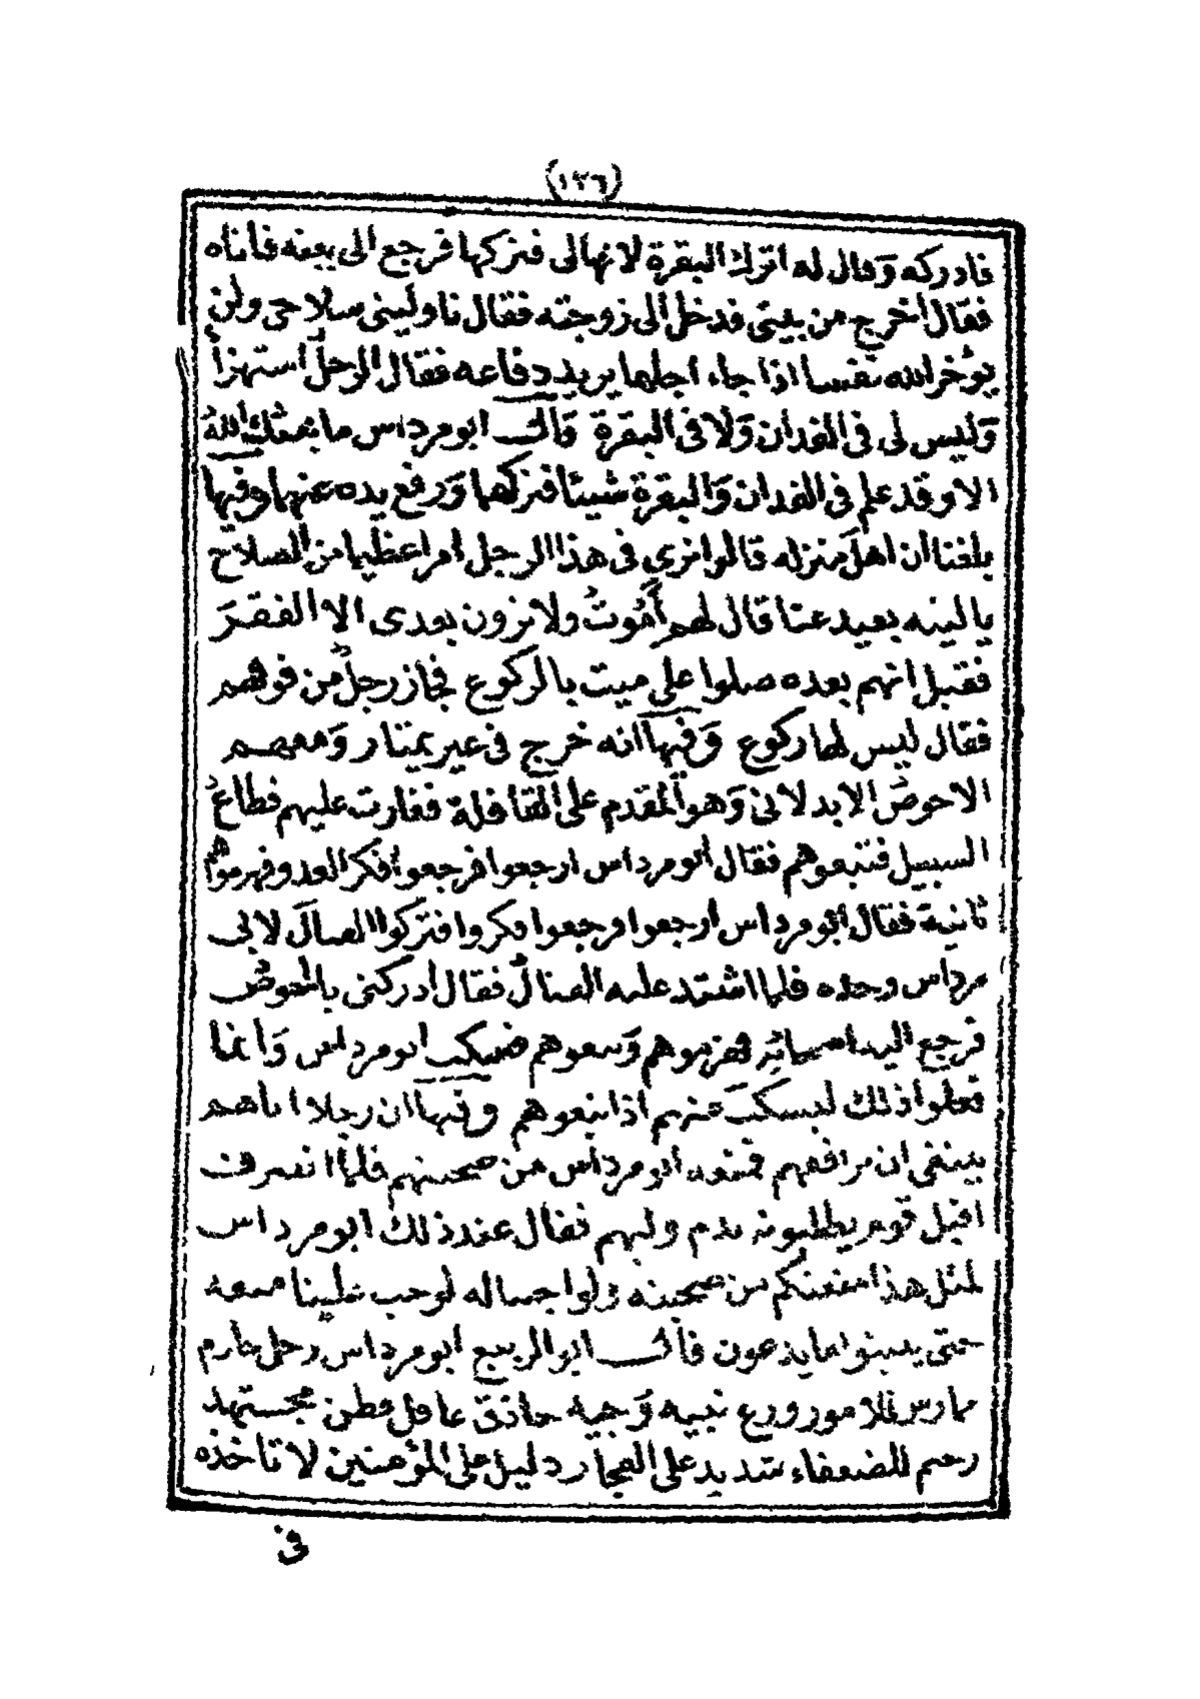 (١٣٦)
فادركه وقال له اترك البقرة لانهالى فتركها فرجع الى بيته فاتاه
فقال اخرج من بيتى فدخل الى زوجته فقال ناولينى سلاحى ولن
يؤخر الله نفسا اذا جاء اجلها يريد دفاعه فقال الرجل استهزأ
وليس لى فى الفدان ولا فى البقرة قال ابو مرداس ما بعثك الله
الا وقد علم فى الفدان والبقرة شيئا فتركهما ورفع يده عنها وفيها
بلغنا ان اهل منزله قالوا نرى فى هذا الرجل امرا عظيما من الصلاح
يا ليته بعيد عنا قال لهم أموت ولا ترون بعدى الا الفقر
فقيل انهم بعده صلوا على ميت بالركوع فجاز رجل من فوقهم
فقال ليس لها ركوع وفيها انه خرج فى عير يمتار ومعهم
الاحوص الابدلانى وهو المقدم على القافلة فغارت عليهم قطاع
السبيل فتبعوهم فقال ابو مرداس ارجعوا فرجعوا فكر العدو فهزموهم
ثانية فقال ابو مرداس ارجعوا فرجعوا فكروا فتركوا القتال لابى
مرداس وحده فلما اشتد عليه القتال فقال ادركنى يا احوص
فرجع اليه اصحابه فهزموهم وتبعوهم فسكت ابو مرداس وانما
فعلوا ذلك ليسكت عنهم اذا تبعوهم وفيها ان رجلا اتاهم
يبتغى ان مرافقهم فمنعه ابو مرداس من صحبتهم فلما انصرفت
اقبل قوم يطلبونه بدم وليهم فقال عند ذلك ابو مرداس
لمثل هذا منعتكم من صحبته ولوا جساله لوجب علينا منعه
حتى يبينوا ما يدعون قال ابو الربيع ابو مرداس رجل حازم
ممارس للامور ورع نبيه وجيه حاذق عاقل فطن مجتهد
رحيم للضعفاء شديد على الفجار دليل على المؤمنين لا تاخذه
فى